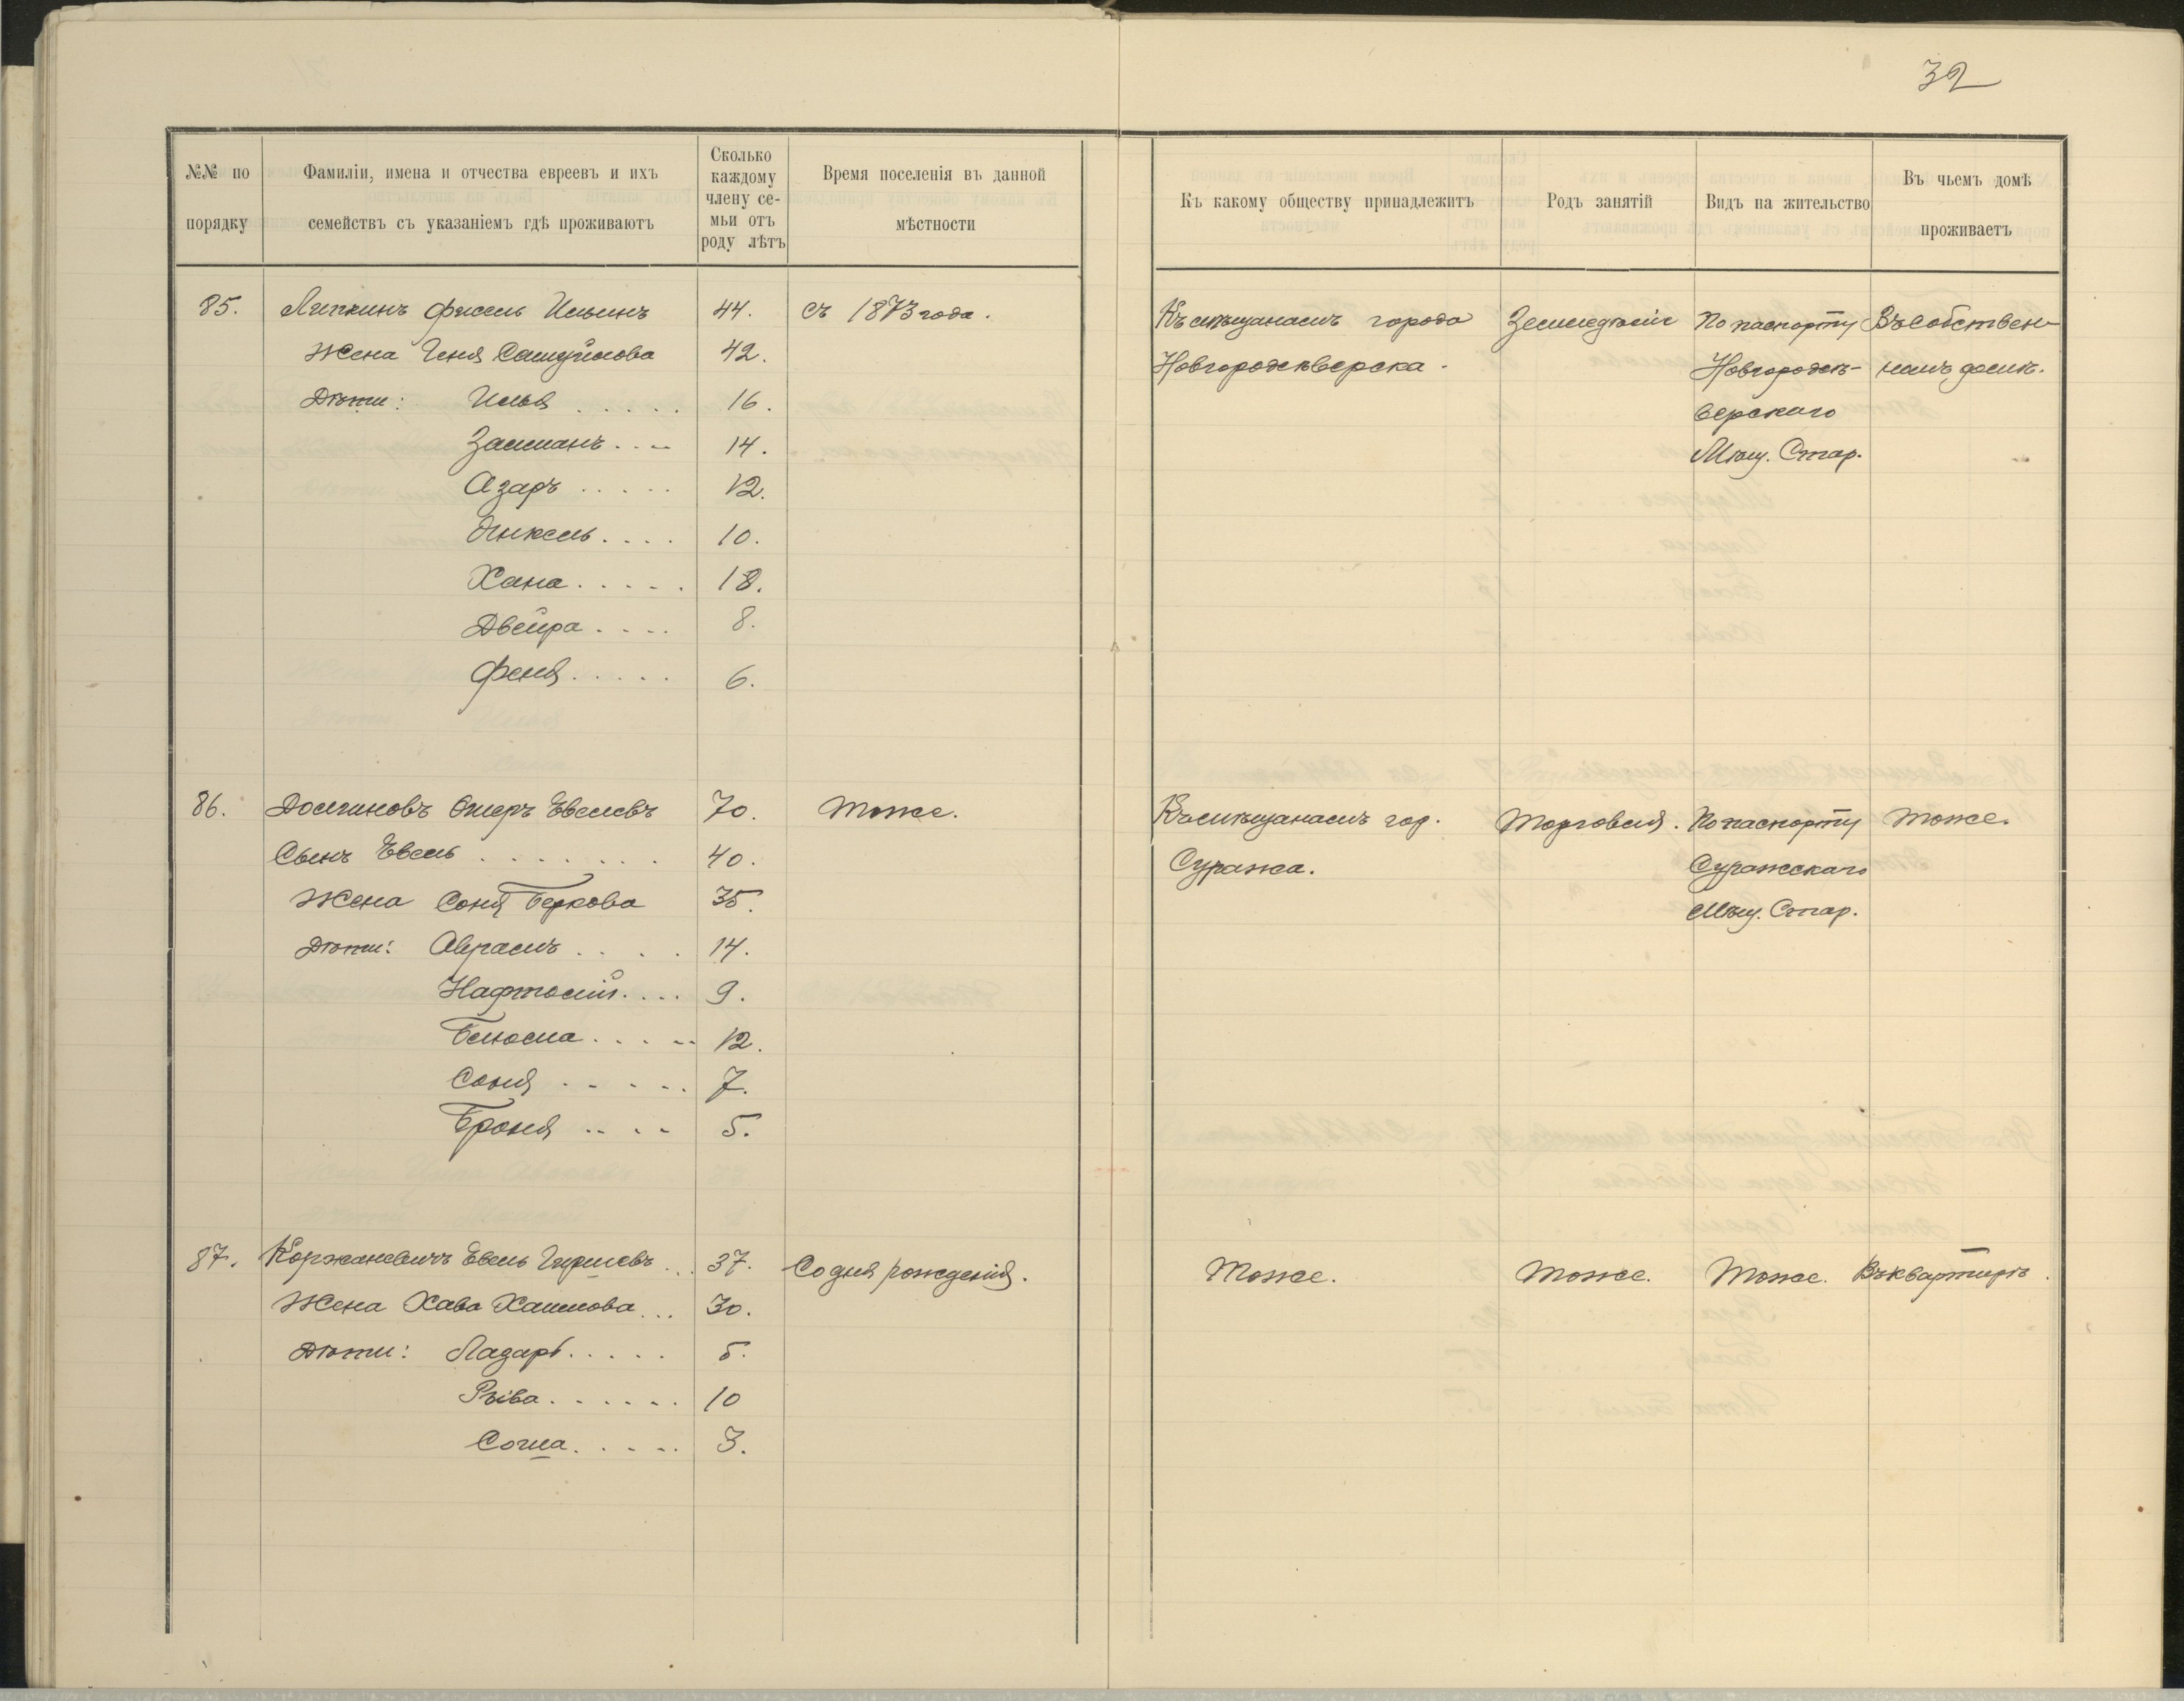 32
№№ по порядку
Фамиліи, имена и отчества евреевъ и ихъ семействъ съ указаніемъ гдѣ проживаютъ
Сколько каждому члену се-мьи отъ роду лѣтъ
Время поселенія въ данной мѣстности
Къ какому обществу принадлежитъ
Родъ занятій
Видъ на жительство
Въ чьемъ домѣ проживаетъ
85. Ляпкинъ Фисель Ильинъ 44. съ 1873 года. Къ мѣщанамъ города Земледѣліе По паспорту Въ собствен-
Жена Геня Самуйлова 42. Новгородсѣверска. Новгородсѣ- номъ домѣ.
Дѣти: Илья 16. верскаго
Залманъ 14. Мѣщ. Стар.
Азаръ 12.
10.
Хана 18.
Двейра 8.
Феня 6.
86. Долгиновъ Омеръ Евелевъ 70. Тоже. Къ мѣщанамъ гор. Торговля. По паспорту Тоже.
Сынъ Евель 40. Суража. Суражскаго
Жена Соня Беркова 35. Мѣщ. Стар.
Дѣти: Абрамъ 14.
Нафтолій 9.
12.
Соня 7.
Броня 5.
87. Коржаневичъ Евель Гиршевъ 37. Со дня рожденія. Тоже. Тоже. Тоже. Въ квартирѣ.
Жена Хава Хаимова 30.
Дѣти: Лазарь 5.
Рыва 10
3.